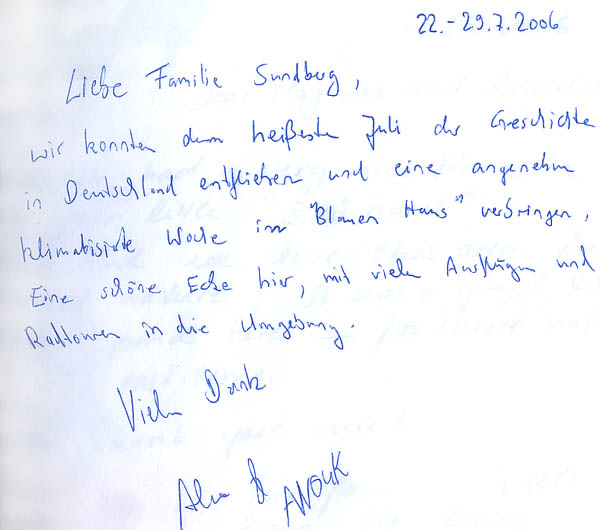 22.-29.7.2006
Liebe Familie Sundberg,
wir konnten dem heißesten Juli der Geschichte
in Deutschland entfliehen und eine angenehm
klimatisierte Woche im "Blauen Haus" verbringen.
Eine schöne Ecke hier, mit vielen Ausflügen und
Radtouren in die Umgebung.
Vielen Dank
& ANOUK